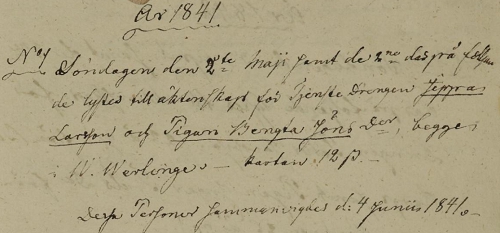 År 1841
No 1 Söndagen den 2dte Maji samt de 2ne daspå följan
de lystes till äktenskap för Tjenste Drengen Jeppa
Larsson och Pigan Bengta Jöns Der, begge
i W. Werlinge - kartan 12 ß. -
Dessa Personer sammanvigdes d: 4 Junii 1841.